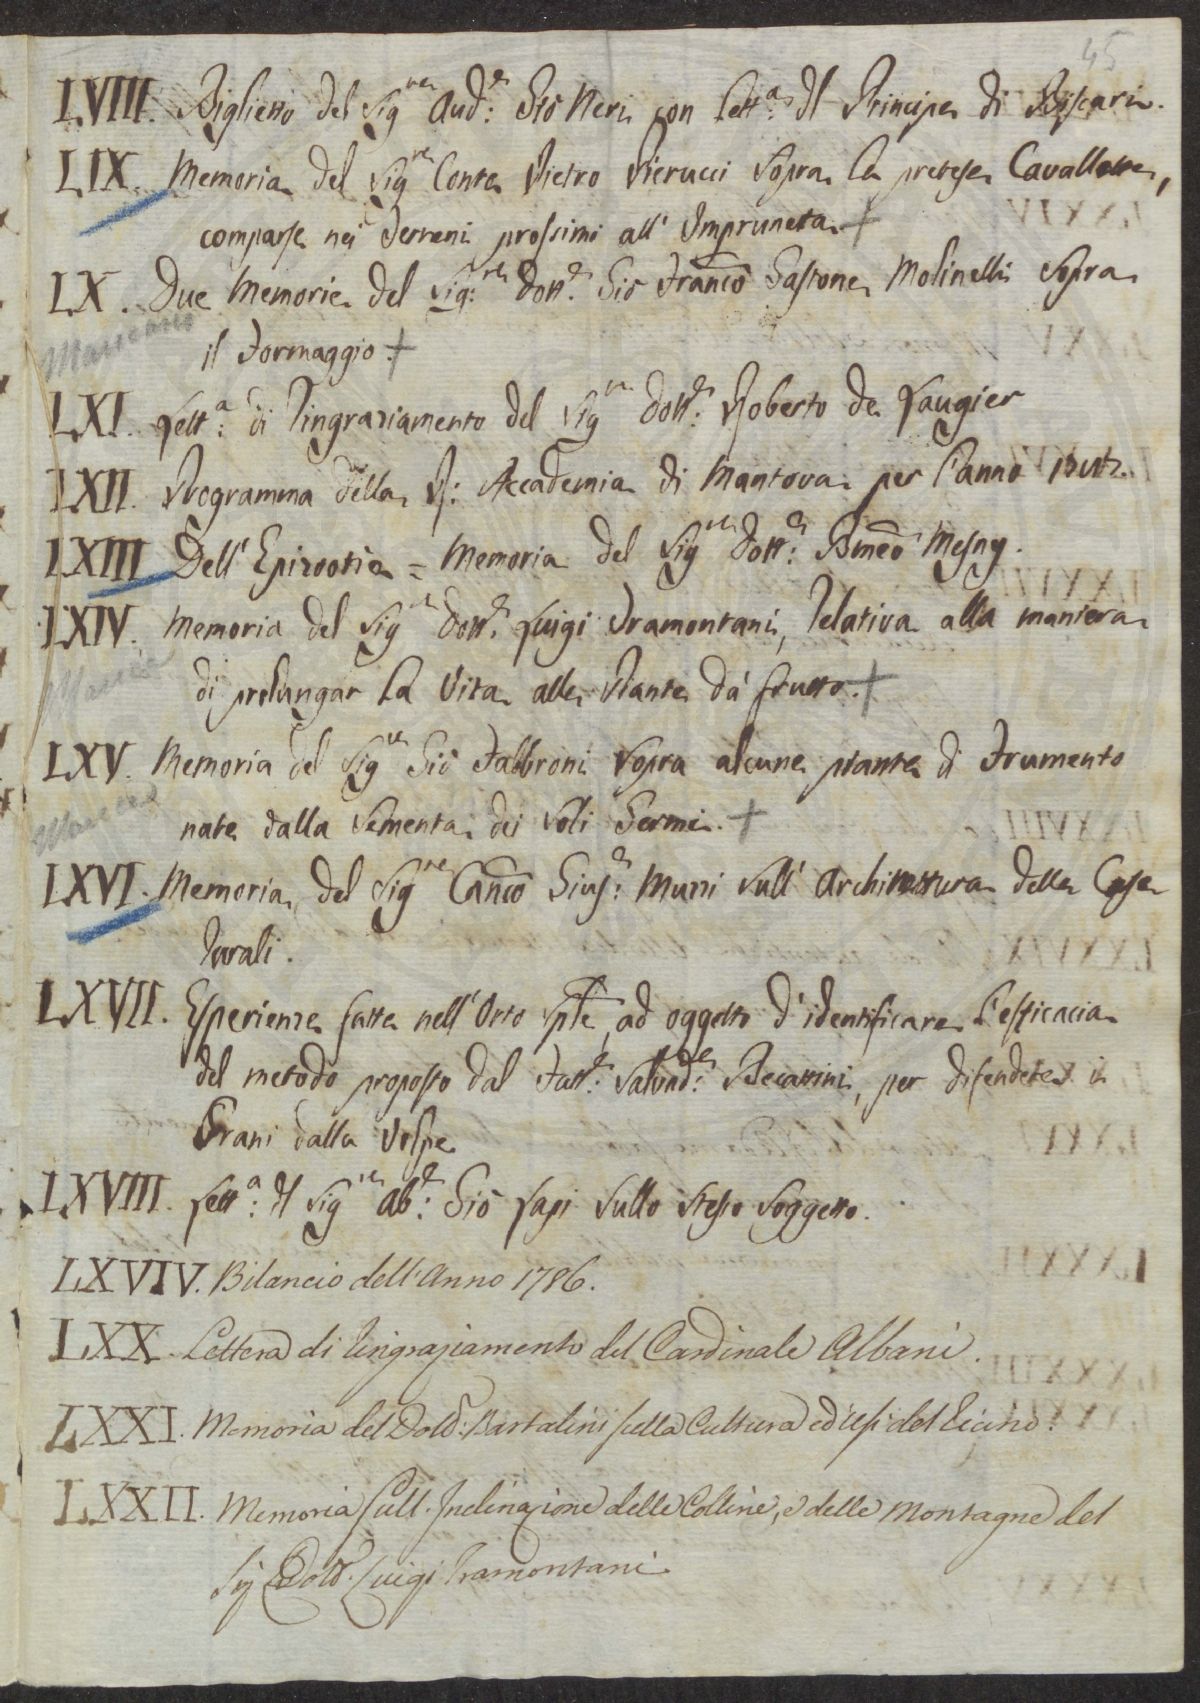 45
LVIII. Biglietto del Sig.re Aud.e Gio Neri con Lett.a dl Principe di Biscari.
LIX. Memoria del Sig.re Conte Pietro Pierucci sopra la pretese Cavallette,
comparse nei Terreni prossimi all' Impruneta. +
LX. Due Memorie del Sig.re Dott.e Gio Franco Gastone Molinelli sopra
Mancano
il Formaggio. +
LXI. Lett.a di ringraziamento del Sig.re Dott.e Roberto de Laugier
LXII. Programma della R: Accademia di Mantova per l'anno
LXIII Dell' Epizootia = Memoria del Sig.re Dott.e Bmeo Mesny.
LXIV. Memoria del Sig.re Dott.e Luigi Tramontani, relativa alla maniera
Manca
di prolungar la Vita alle Piante da' frutto. +
LXV. Memoria del Sig.re Gio Fabbroni sopra alcune piante di Frumento
Manca
nate dalla sementa dei soli Germi. +
LXVI. Memoria del Sig.re Canco Gius.e Muzzi sull' Architettura delle Case
rurali.
LXVII. Esperienze fatte nell' Orto Sple, ad oggetto d'identificare l'efficacia
del metodo proposto dal Fatt.e Salvad.e Becattini, per difendere i
Grani dalla Volpe
LXVIII. Lett.a dl Sig.re Ab.e Gio Lapi sullo stesso soggetto.
LXVIV. Bilancio dell'Anno 1786.
LXX. Lettera di ringraziamento del Cardinale Albani.
LXXI. Memoria del Dott.e Bartalini sulla Cultura ed usi del Ricino.
LXXII. Memoria sull. Inclinazione delle Colline, e delle Montagne del
Sig Dott.e Luigi Tramontani